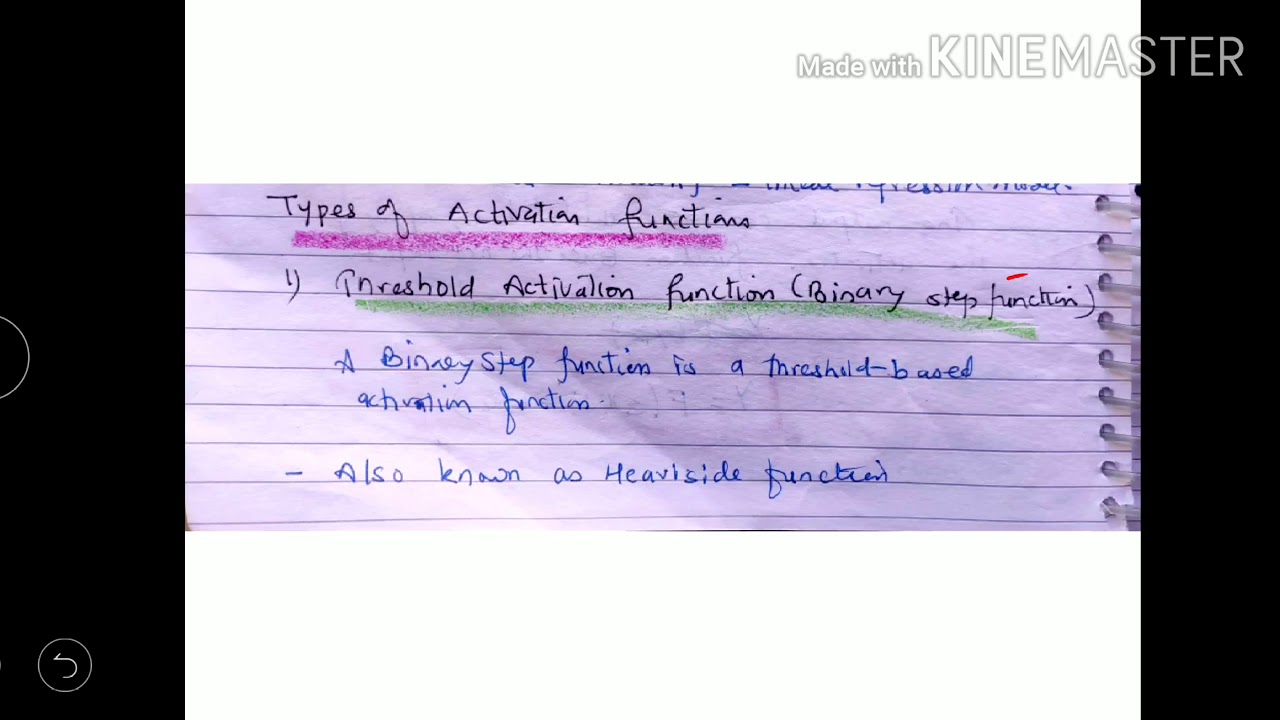 Made with KINEMASTER
linear regression model.
Types of Activation functions
1) Threshold Activation function (Binary step function)
A Binary step function is a threshold-based
activation function.
- Also known as Heaviside function